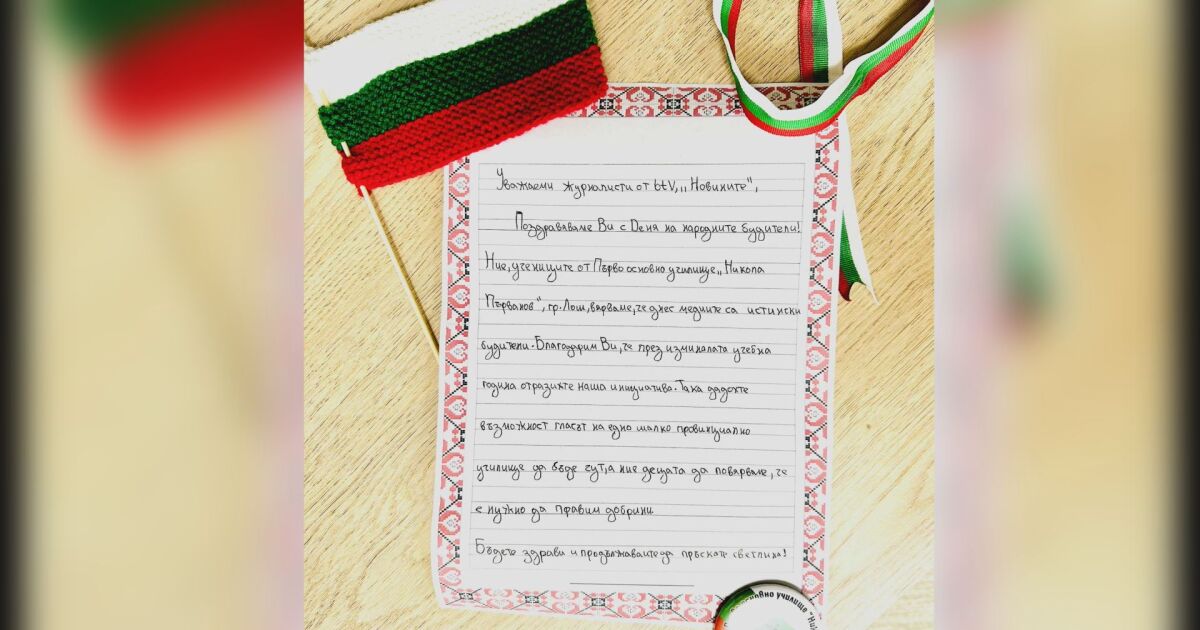 Уважаеми журналисти от btV,,, Новините",
Поздравяваме Ви с Деня на народните будители!
Ние, учениците от Първо основно училище,, Никола
Първанов", гр. Лом, вярваме, че днес медиите са истински
будители. Благодарим Ви, че през изминалата учебна
година отразихте наша инициатива. Така дадохте
възможност гласът на едно малко провинциално
училище да бъде чут, а ние децата да повярваме, че
е нужно да правим добрини
Бъдете здрави и продължавайте да пръскате светлина!
училище "Ник